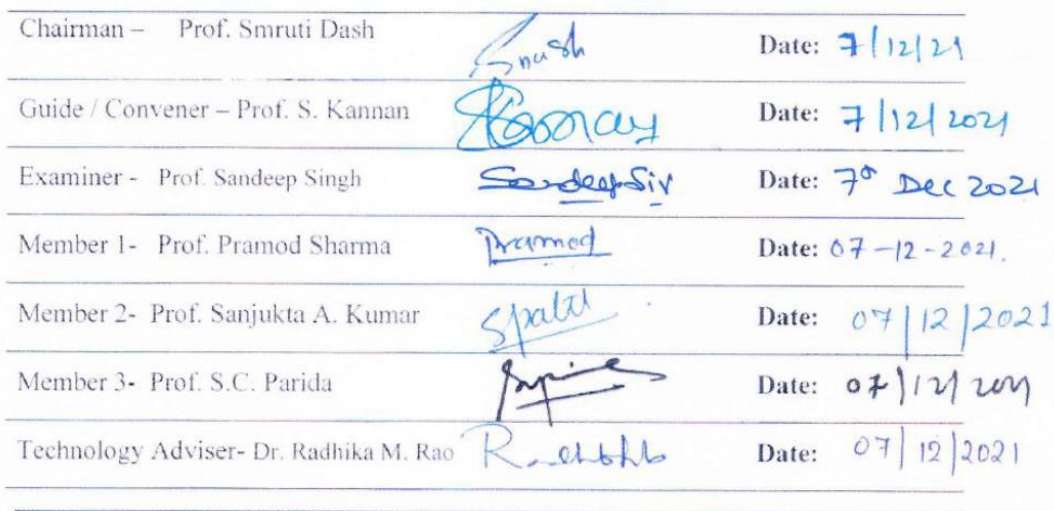 Chairman – Prof. Smruti Dash Date: 7/12/21
Guide / Convener – Prof. S. Kannan Date: 7/12/2021
Examiner - Prof. Sandeep Singh Date: 7 Dec 2021
Member 1- Prof. Pramod Sharma Pramod Date: 07-12-2021.
Member 2- Prof. Sanjukta A. Kumar Date: 07/12/2021
Member 3- Prof. S.C. Parida Date: 07/12/2021
Technology Adviser- Dr. Radhika M. Rao Date: 07/12/2021